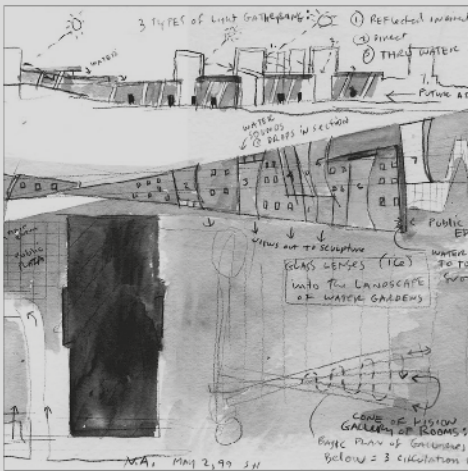 3 TYPES OF LIGHT GATHERING:
① REFLECTED INDIRECT
② DIRECT
③ THRU WATER
WATER
FUTURE AD
WATER
SOUNDS
@ DROPS IN SECTION
PUBLIC
VIEWS OUT TO SCULPTURE
GLASS LENSES (ICE)
INTO THE LANDSCAPE
OF WATER GARDENS
WATER
TO TO
PUBLIC
PLAZA
CONE OF VISION
GALLERY OF ROOMS:
BASIC PLAN OF GALLERIES
BELOW = 3 CIRCULATION
N.A. MAY 2, 99 SH